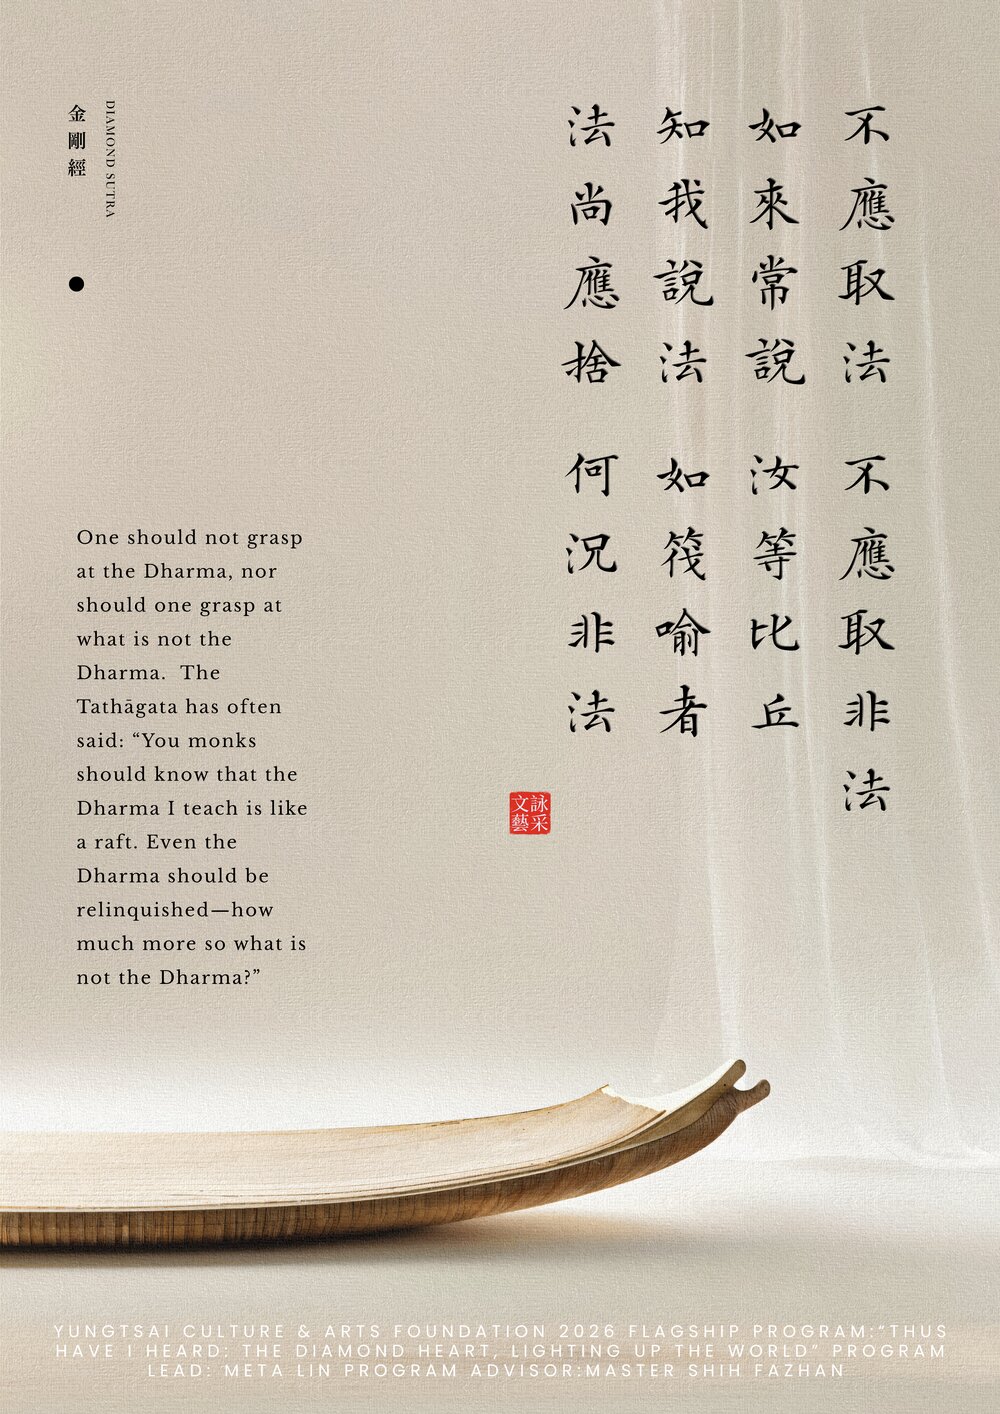 金剛經
DIAMOND SUTRA
不應取法 不應取非法
如來常說 汝等比丘
知我說法 如筏喻者
法尚應捨 何況非法
詠采
文藝
One should not grasp
at the Dharma, nor
should one grasp at
what is not the
Dharma.  The
Tathāgata has often
said: “You monks
should know that the
Dharma I teach is like
a raft. Even the
Dharma should be
relinquished—how
much more so what is
not the Dharma?”
YUNGTSAI CULTURE & ARTS FOUNDATION 2026 FLAGSHIP PROGRAM:“THUS
HAVE I HEARD: THE DIAMOND HEART, LIGHTING UP THE WORLD” PROGRAM
LEAD: META LIN PROGRAM ADVISOR:MASTER SHIH FAZHAN